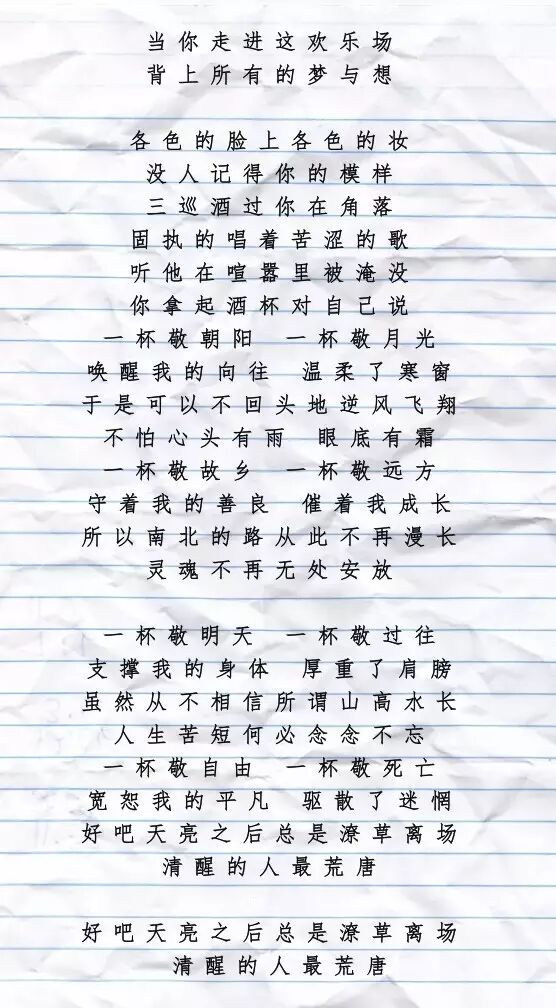 当你走进这欢乐场
背上所有的梦与想
各色的脸上各色的妆
没人记得你的模样
三巡酒过你在角落
固执的唱着苦涩的歌
听他在喧嚣里被淹没
你拿起酒杯对自己说
一杯敬朝阳 一杯敬月光
唤醒我的向往 温柔了寒窗
于是可以不回头地逆风飞翔
不怕心头有雨 眼底有霜
一杯敬故乡 一杯敬远方
守着我的善良 催着我成长
所以南北的路从此不再漫长
灵魂不再无处安放
一杯敬明天 一杯敬过往
支撑我的身体 厚重了肩膀
虽然从不相信所谓山高水长
人生苦短何必念念不忘
一杯敬自由 一杯敬死亡
宽恕我的平凡 驱散了迷惘
好吧天亮之后总是潦草离场
清醒的人最荒唐
好吧天亮之后总是潦草离场
清醒的人最荒唐